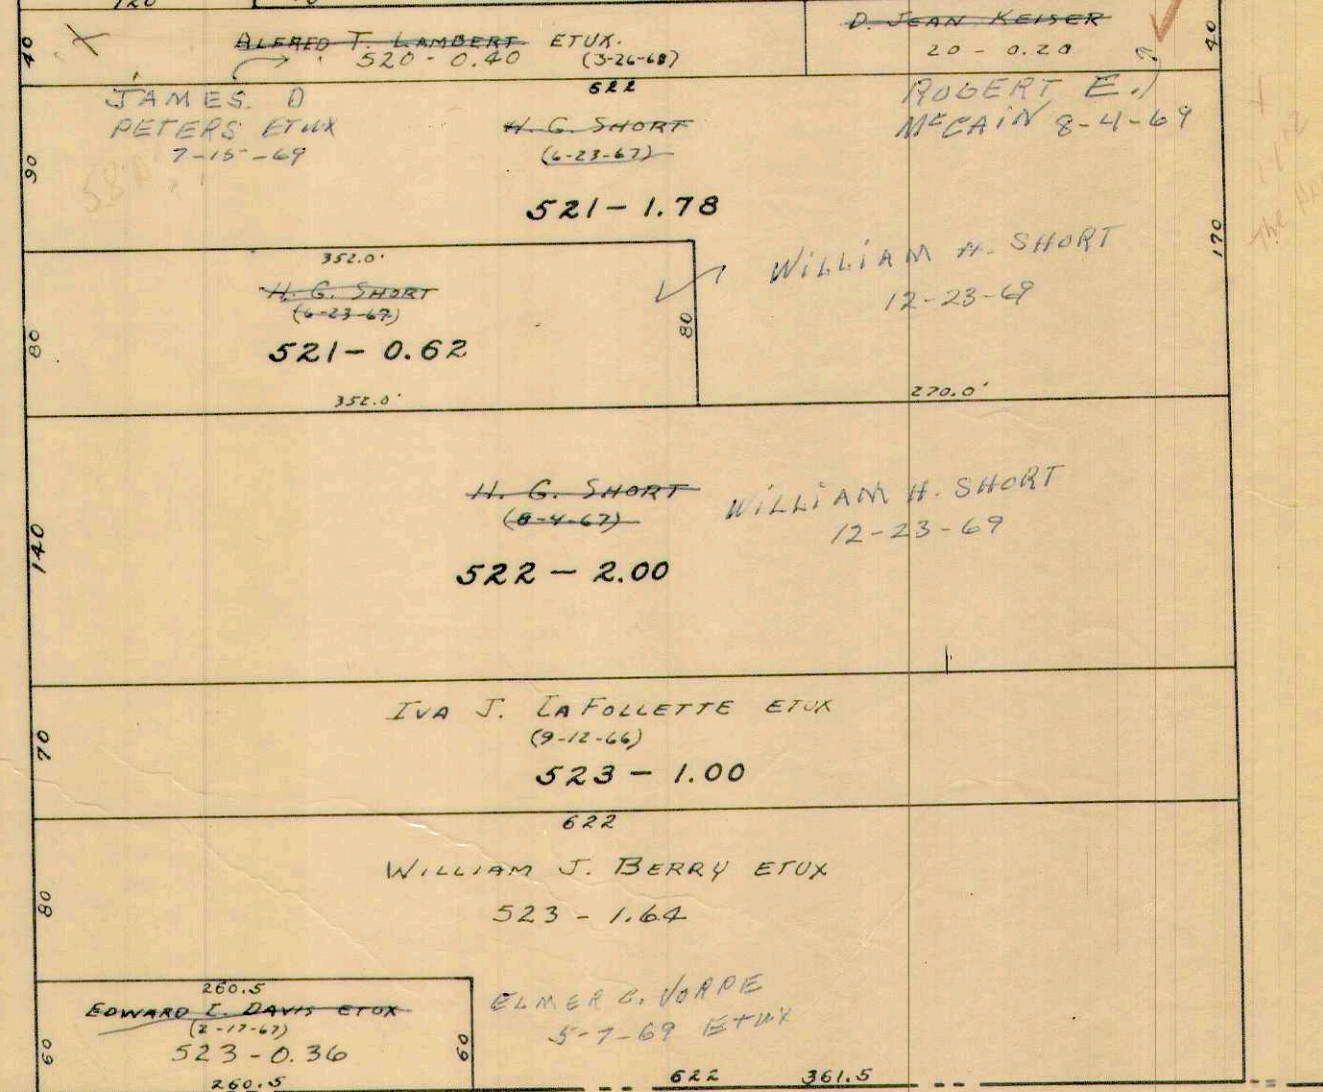 120
40
ALFRED T. LAMBERT ETUX.
520 - 0.40 (3-26-68)
D. JEAN KEISER
20 - 0.20
40
622
JAMES D
PETERS ETUX
7-15-69
H. G. SHORT
(6-23-67)
521 - 1.78
ROBERT E.
McCAIN 8-4-69
90
170
WILLIAM H. SHORT
12-23-69
352.0'
H. G. SHORT
(6-23-67)
521 - 0.62
80
80
352.0'
270.0'
H. G. SHORT
(8-4-67)
522 - 2.00
WILLIAM H. SHORT
12-23-69
140
IVA J. LAFOLLETTE ETUX
(9-12-66)
523 - 1.00
70
622
WILLIAM J. BERRY ETUX
523 - 1.64
80
260.5
EDWARD E. DAVIS ETUX
(2-17-67)
523 - 0.36
60
60
260.5
ELMER C. VORPE
5-7-69 ETUX
622 361.5